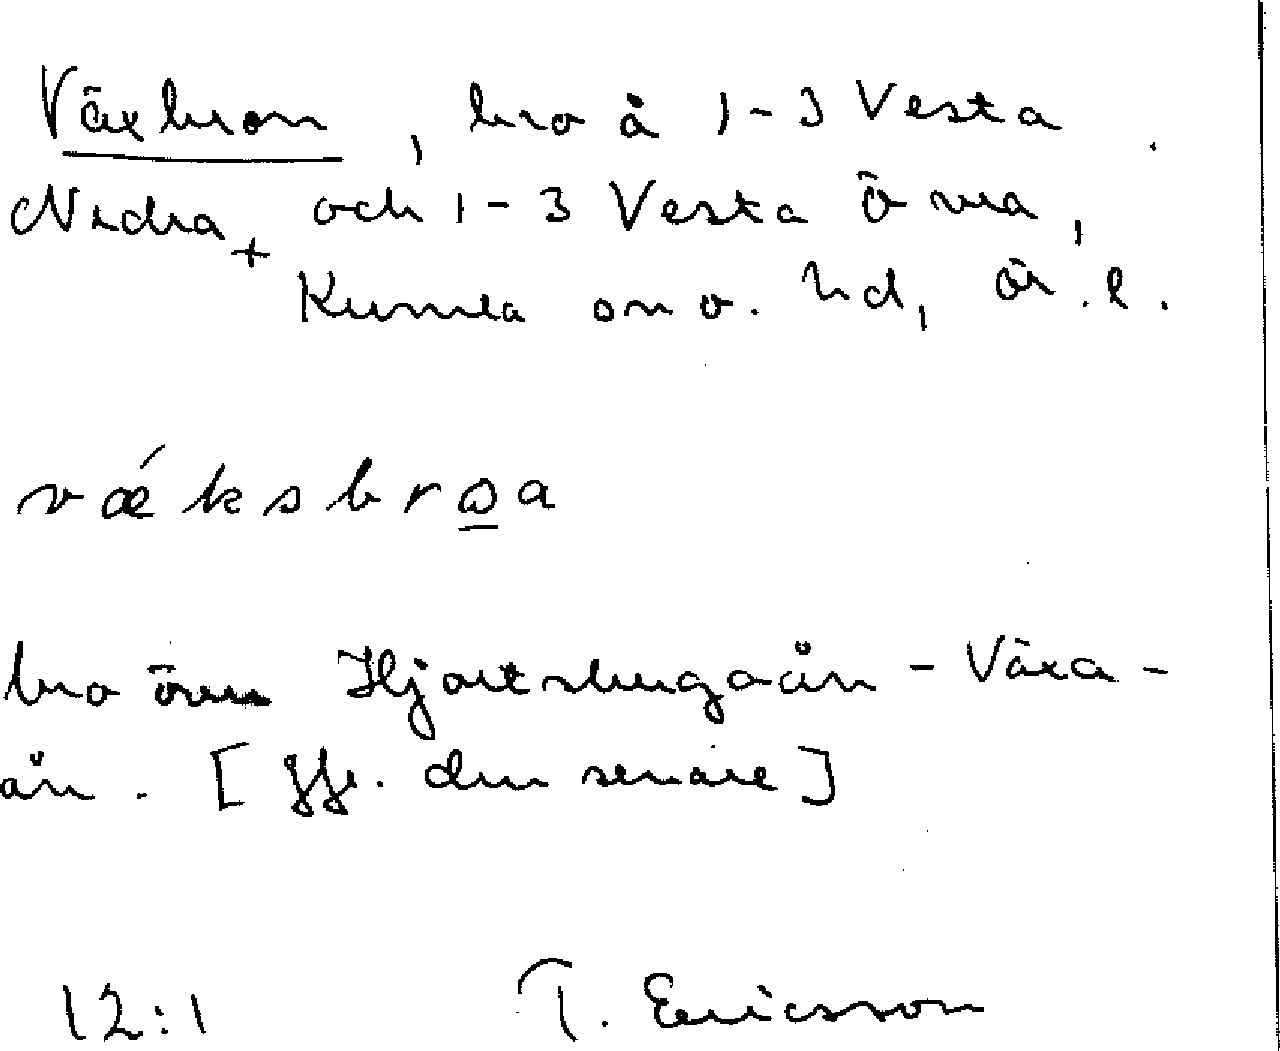 Växbron, bro å 1-3 Vesta
Nedra + och 1-3 Vesta Övra,
Kumla sn o. hd, Ör. l.
vǽksbroa
bro över Hjortsbergaån - Växa-
ån. [Jfr. den senare]
12:1 T. Ericsson